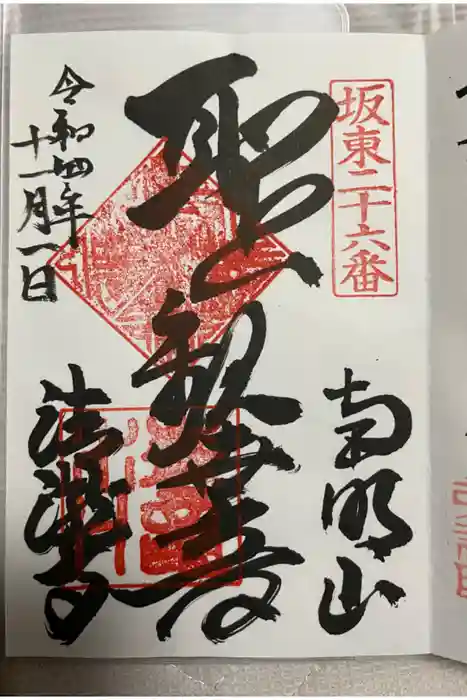 坂東二十六番
南明山
聖観世音
令和四年
十一月八日
清瀧寺